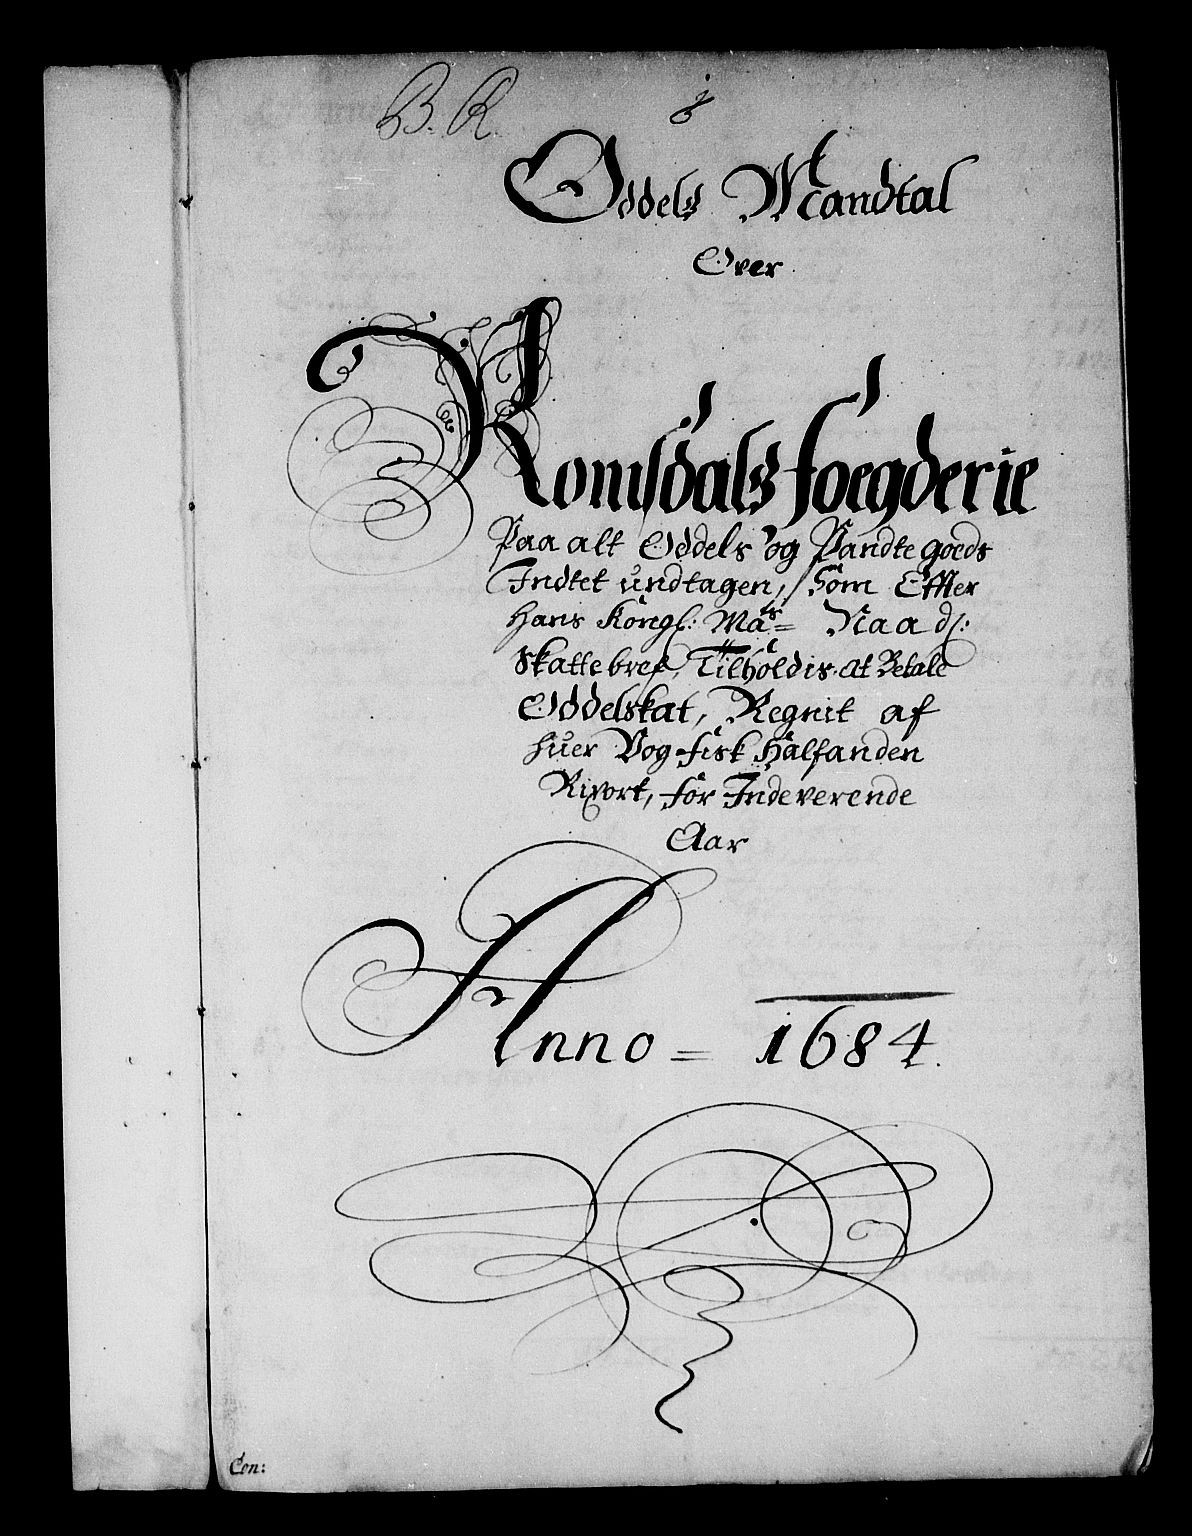 B. R.
Oddels Mandtal
Over
Romsdals foegderie
Paa alt Oddels og Pandte goeds
Indtet undtagen, Som Effter
Hans Kongl: Mats= Naad:
Skattebref, Tilholdis at Betale
Oddelskat, Regnit af
huer Vog fisk Halfanden
Rixort, for Indeverende
Aar
Anno = 1684.
Con: